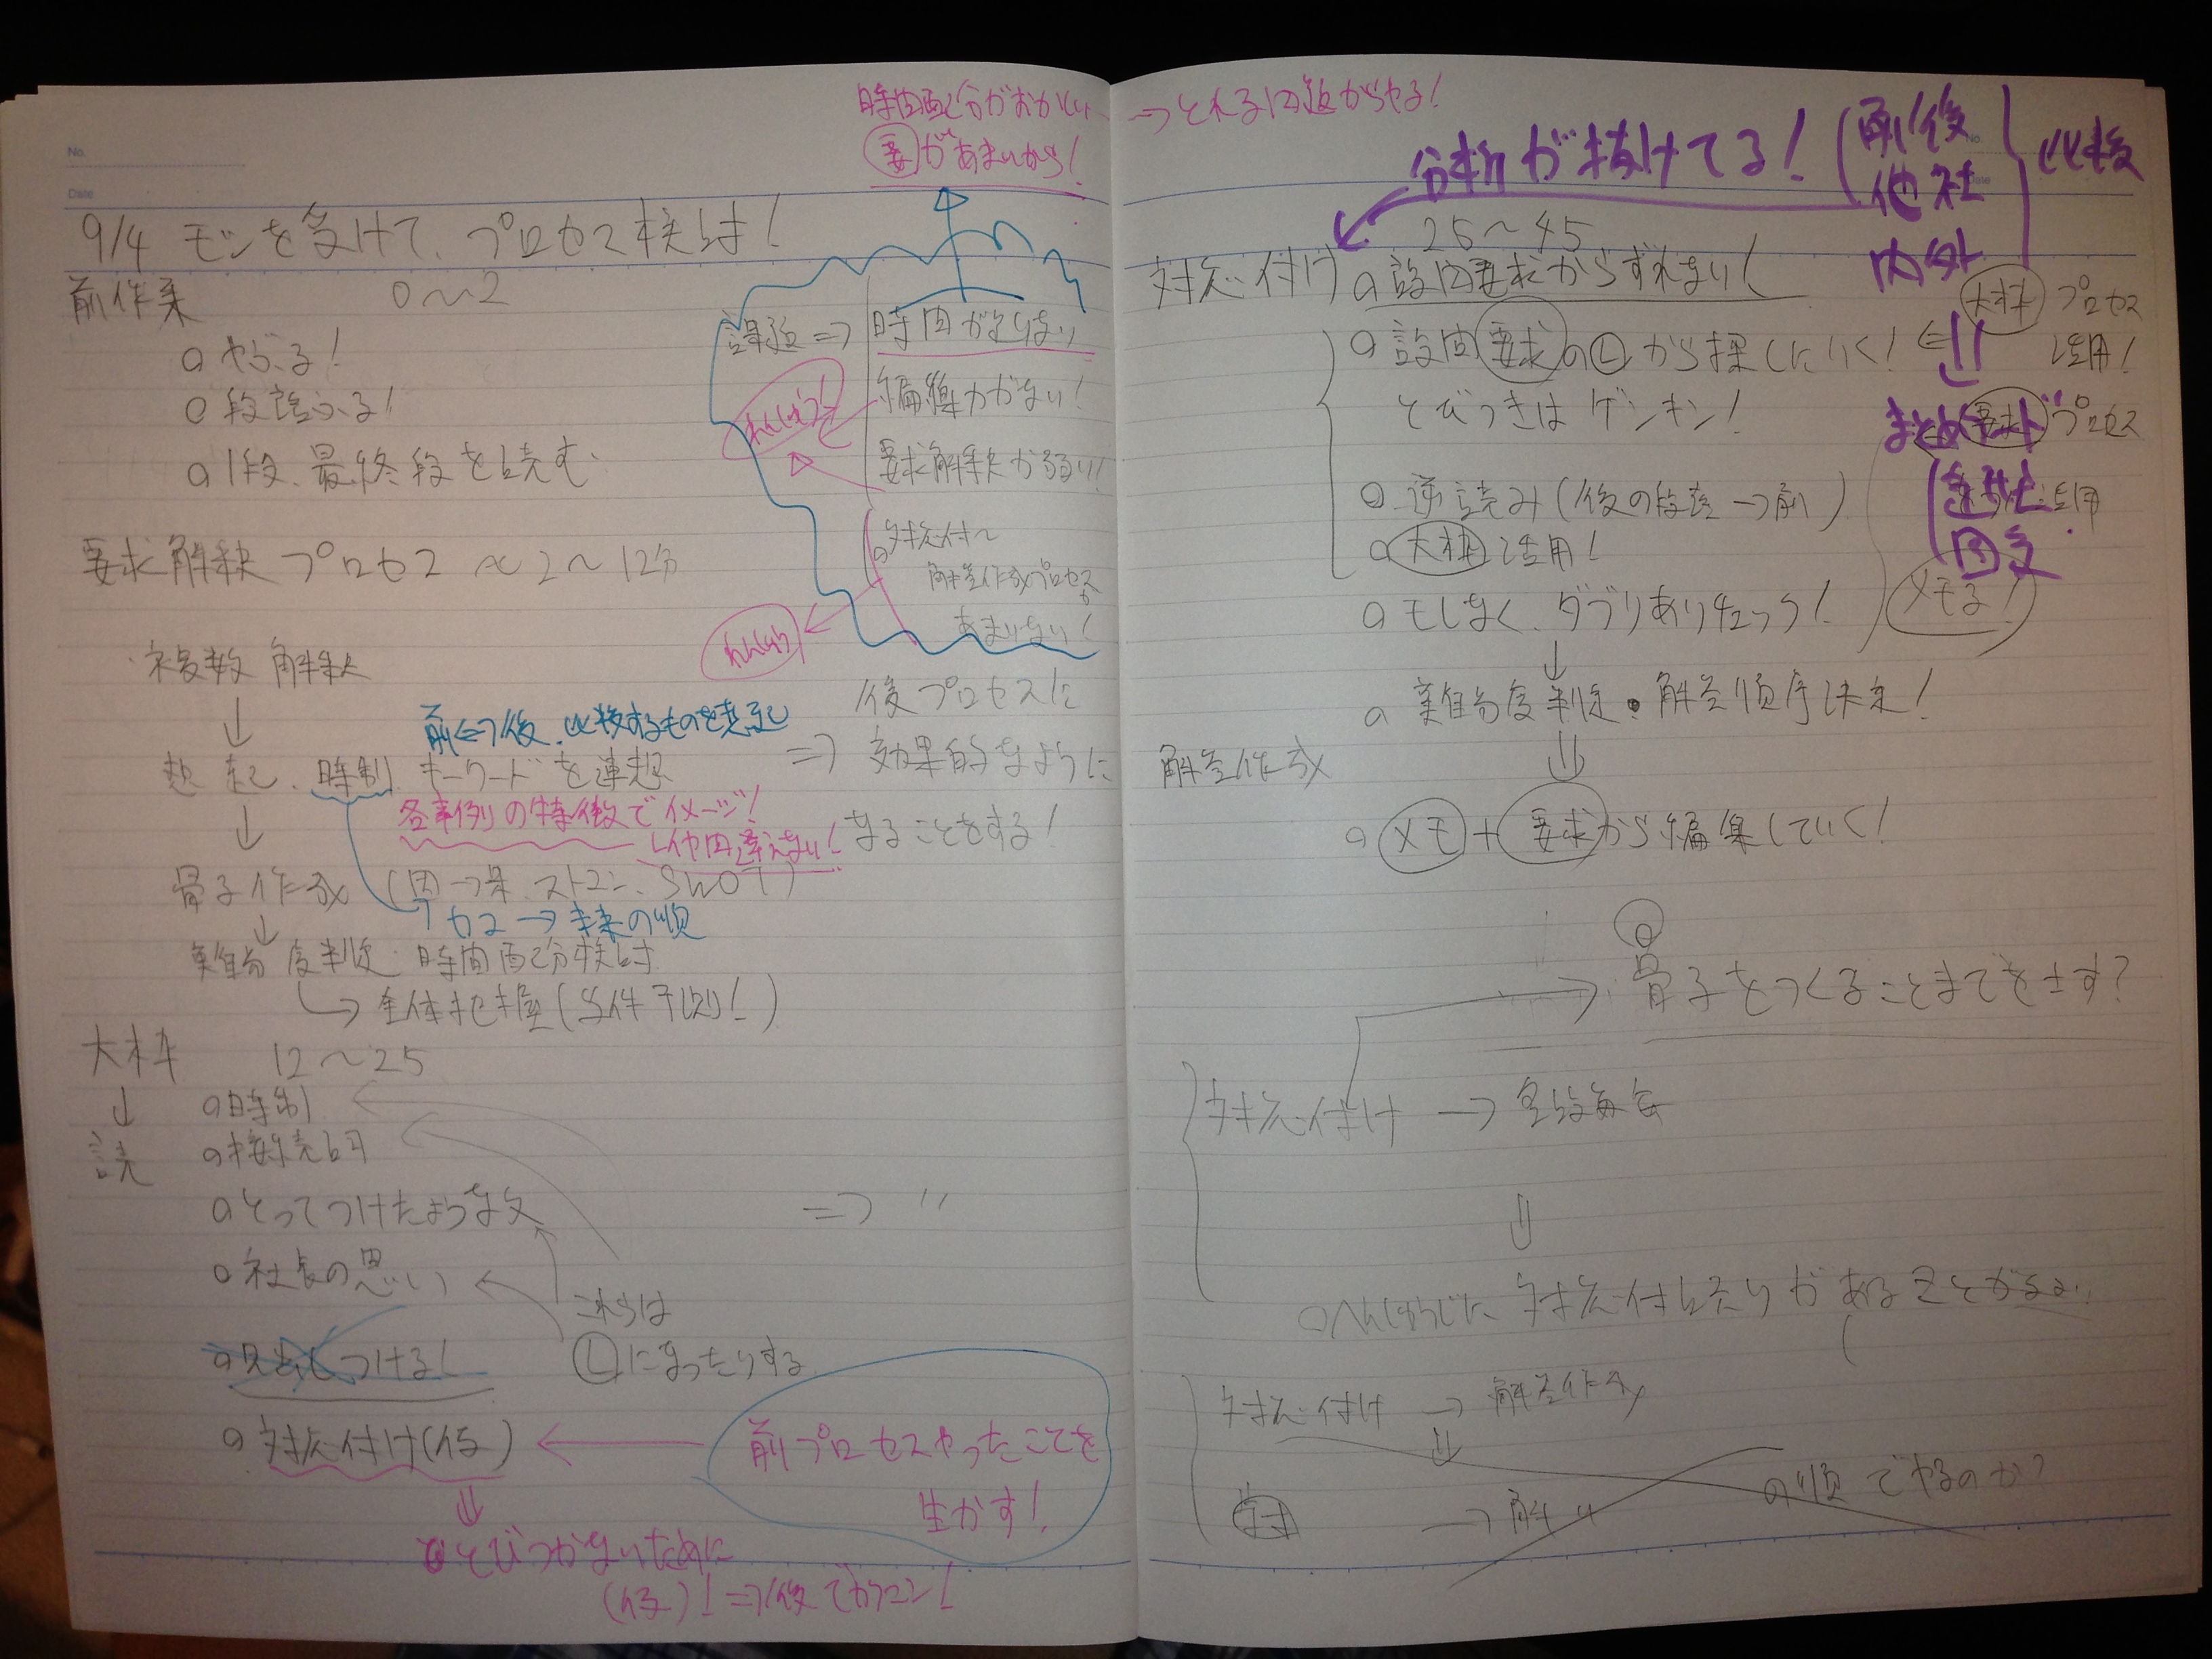 No.
Date
時間配分がおかしい
要があまいから!
9/4 モシを受けて、プロセス検討!
前作業 0〜2
やぶる!
段落ふる!
1段、最終段を読む
要求解釈プロセス 2〜12分
複数解釈
↓
想起、時制、キーワードを連想
前⇔後、比較するものを想起
各事例の特徴でイメージ!
間違えない!
↓
骨子作成 (因→果、ストコン、SWOT)
カコ→未来の順
↓
難易度判定・時間配分検討
全体把握(与件予測!)
課題⇒ 時間が足りない
編集力がない!
要求解釈が弱い!
対応付〜
解答作成プロセス
があまりない!
⇒ 後プロセスに
効果的なように
なることをする!
大枠 12〜25
↓
読
時制
接続詞
とってつけたような文
社長の思い
⇒ 〃
これらは
Ⓛになったりする
見出しつける!
対応付け(仮)
←
前プロセスやったことを
生かす!
⇓
とびつかないために
(仮)!⇒後でガッコン!
→とれる問題からやる!
分析が抜けてる!
前/後
他社
内外
比較
対応付け 25〜45
設問要求からずれない!
設問要求のⓁから探しにいく!
とびつきはゲンキン!
逆読み(後の段落→前)
大枠活用!
モレなく、ダブリありチェック!
↓
難易度判定・解答順序決定!
⇓
大枠プロセス
活用!
要求プロセス
活用
メモる!
解答作成
メモ+要求から編集していく!
→ 骨子をつくることまでを土す?
対応付け → 全設毎
⇓
対応付け残りがあることがない
対応付け → 解答作成
⇓
対 → 解〃
の順でやるのか?